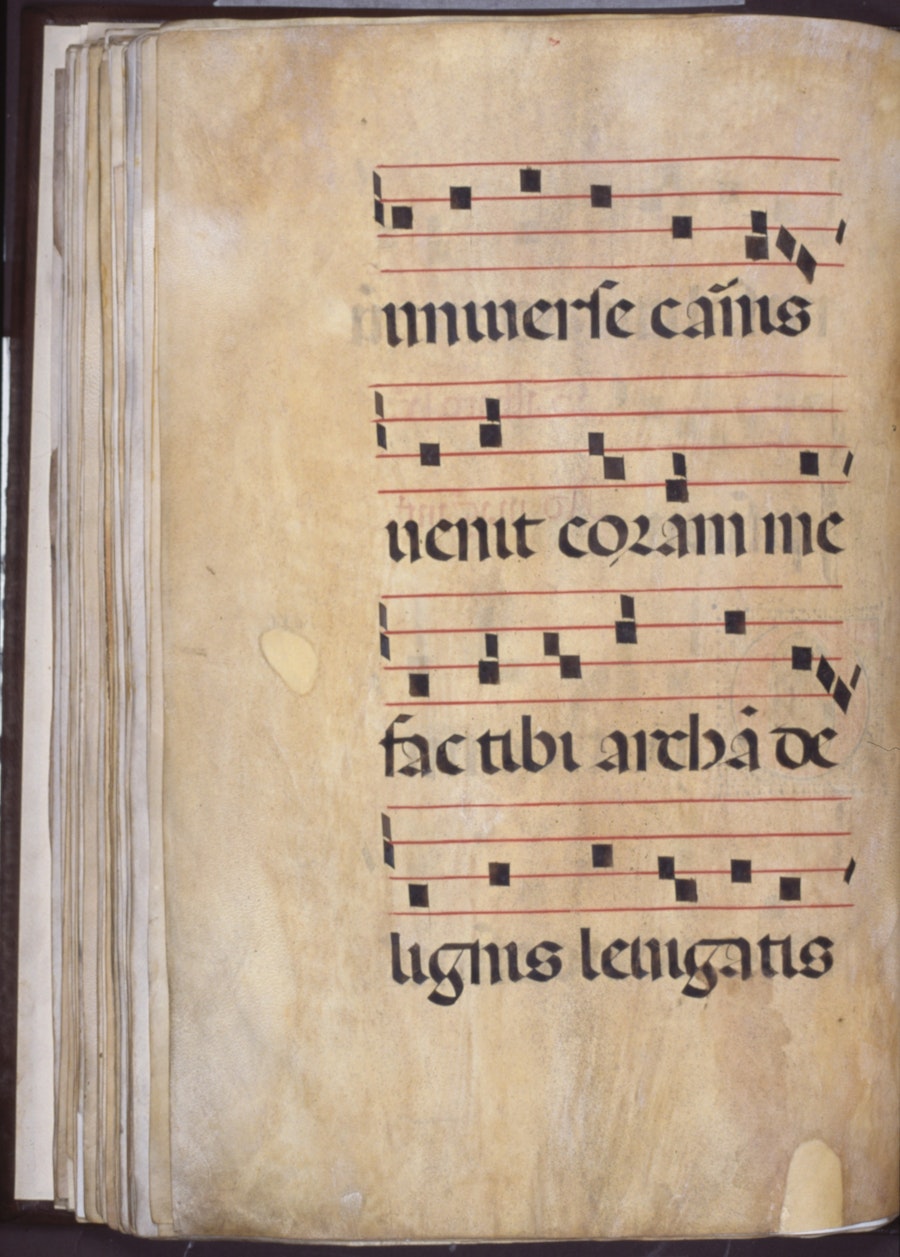 uniuerse ca᷑nis
uenit coram me
fac tibi archā de
lignis leuigatis